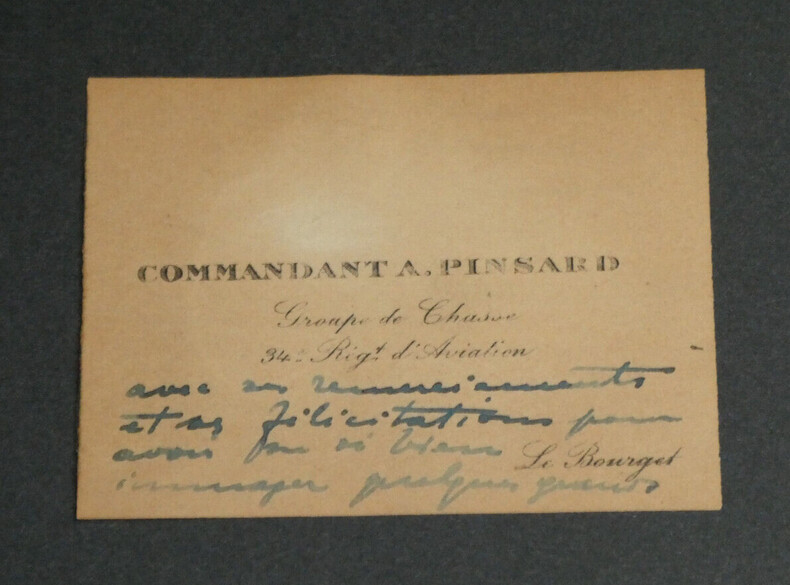 COMMANDANT A. PINSARD
Groupe de Chasse
34e Régt d'Aviation
avec ses remerciements
et ses félicitations pour
avoir su si bien
Le Bourget
quelques grands